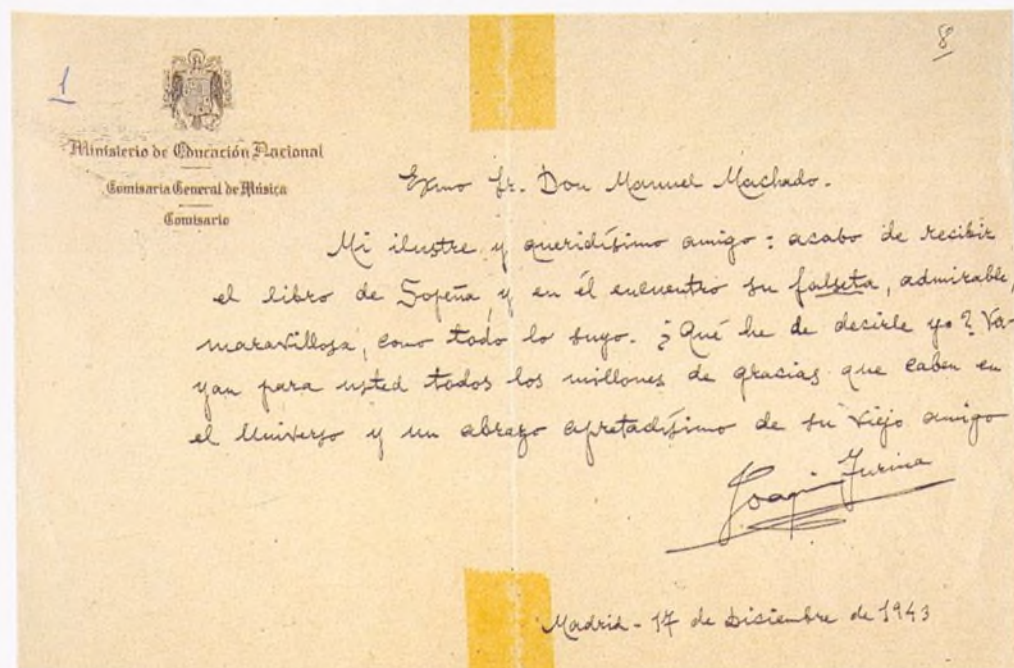 1
8
Ministerio de Educación Nacional
Comisaría General de Música
Comisario
Exmo Sr. Don Manuel Machado.
Mi ilustre y queridísimo amigo: acabo de recibir
el libro de Sopeña y en él encuentro su falseta, admirable,
maravillosa, como todo lo suyo. ¿Qué he de decirle yo? Va-
yan para usted todos los millones de gracias que caben en
el Universo y un abrazo apretadísimo de su viejo amigo
Joaquín Turina
Madrid - 17 de Diciembre de 1943